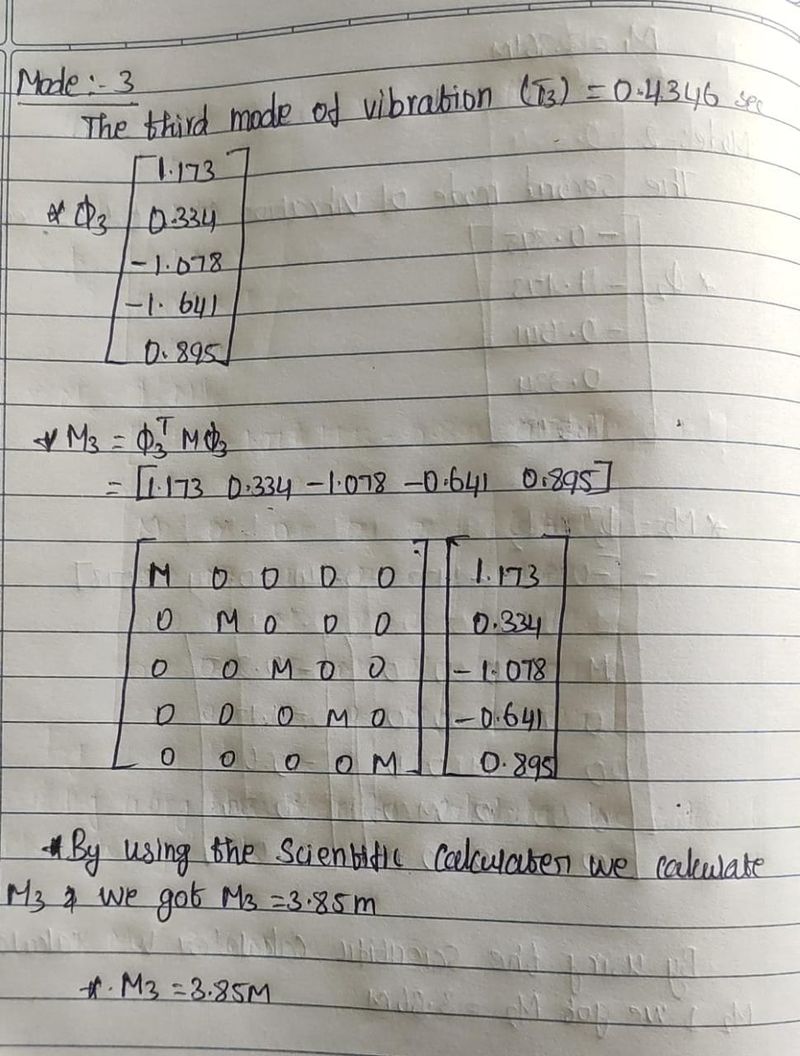 Mode :- 3
The third mode of vibration (T3) = 0.4346 sec
* Φ3 [1.173
0.334
-1.078
-1.641
0.895]
* M3 = Φ3^T M Φ3
= [1.173 0.334 -1.078 -0.641 0.895]
[M 0 0 0 0] [1.173
0 M 0 0 0 0.334
0 0 M 0 0 -1.078
0 0 0 M 0 -0.641
0 0 0 0 M] 0.895]
* By using the Scientific Calculator we calculate
M3 & we got M3 = 3.85m
* M3 = 3.85M